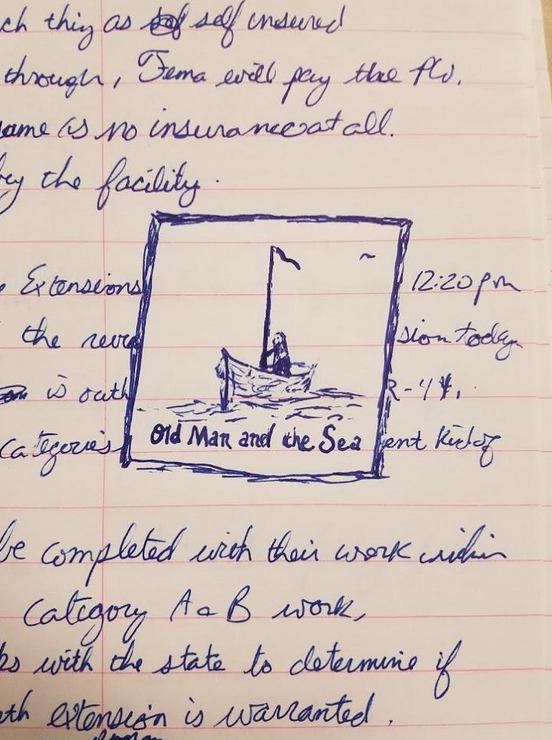 ch thig as self insured
through, Fema will pay the
ame is no insurance at all.
by the facility.
Extensions 12:20 pm
the sion today
is outh R-44.
categories ent Kickof
Old Man and the Sea
be completed with their work within
category A a B work,
ks with the state to determine if
th extension is warranted.